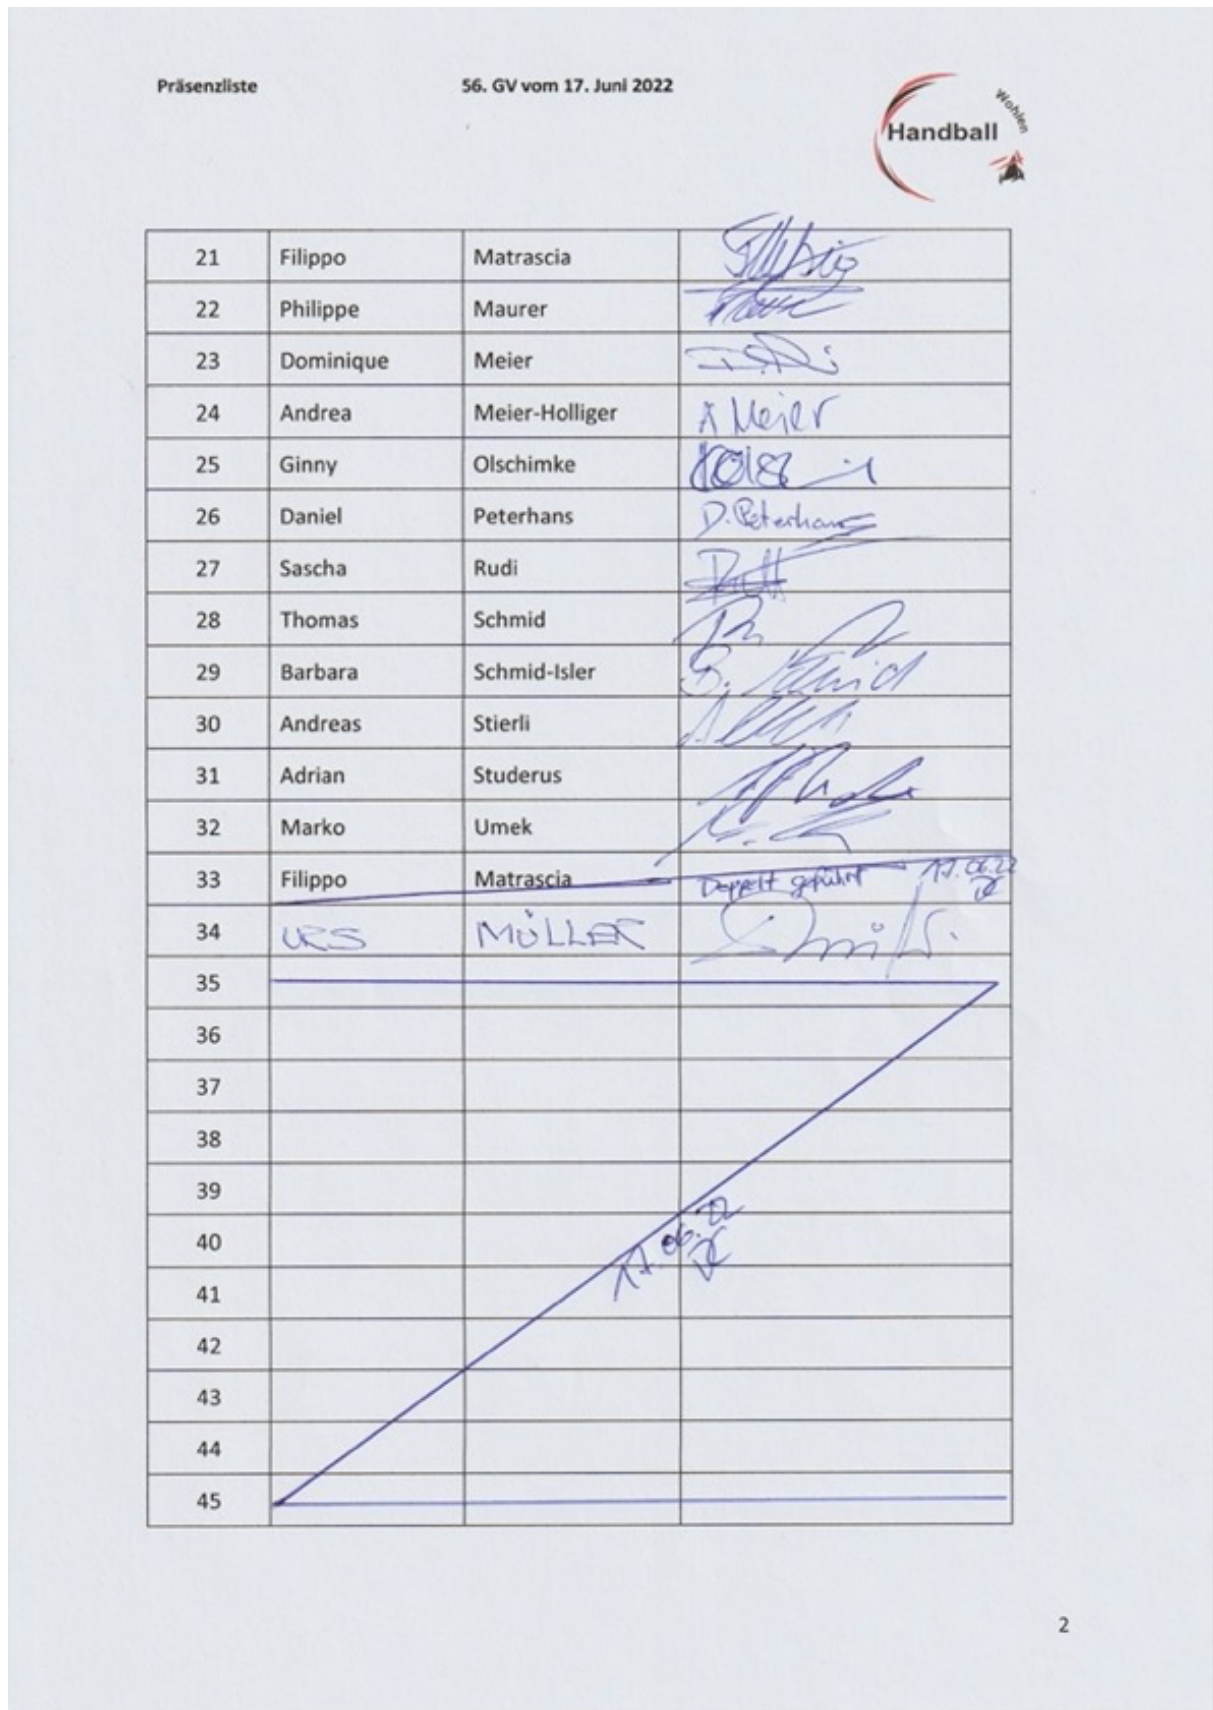 Präsenzliste 56. GV vom 17. Juni 2022
Handball Wohlen
21 Filippo Matrascia
22 Philippe Maurer
23 Dominique Meier
24 Andrea Meier-Holliger A Meier
25 Ginny Olschimke
26 Daniel Peterhans D. Peterhans
27 Sascha Rudi
28 Thomas Schmid
29 Barbara Schmid-Isler B. Schmid
30 Andreas Stierli
31 Adrian Studerus
32 Marko Umek
33 Filippo Matrascia Doppelt geführt 17.06.22
34 URS MÜLLER
35
36
37
38
39
40 17.06.22
41
42
43
44
45
2